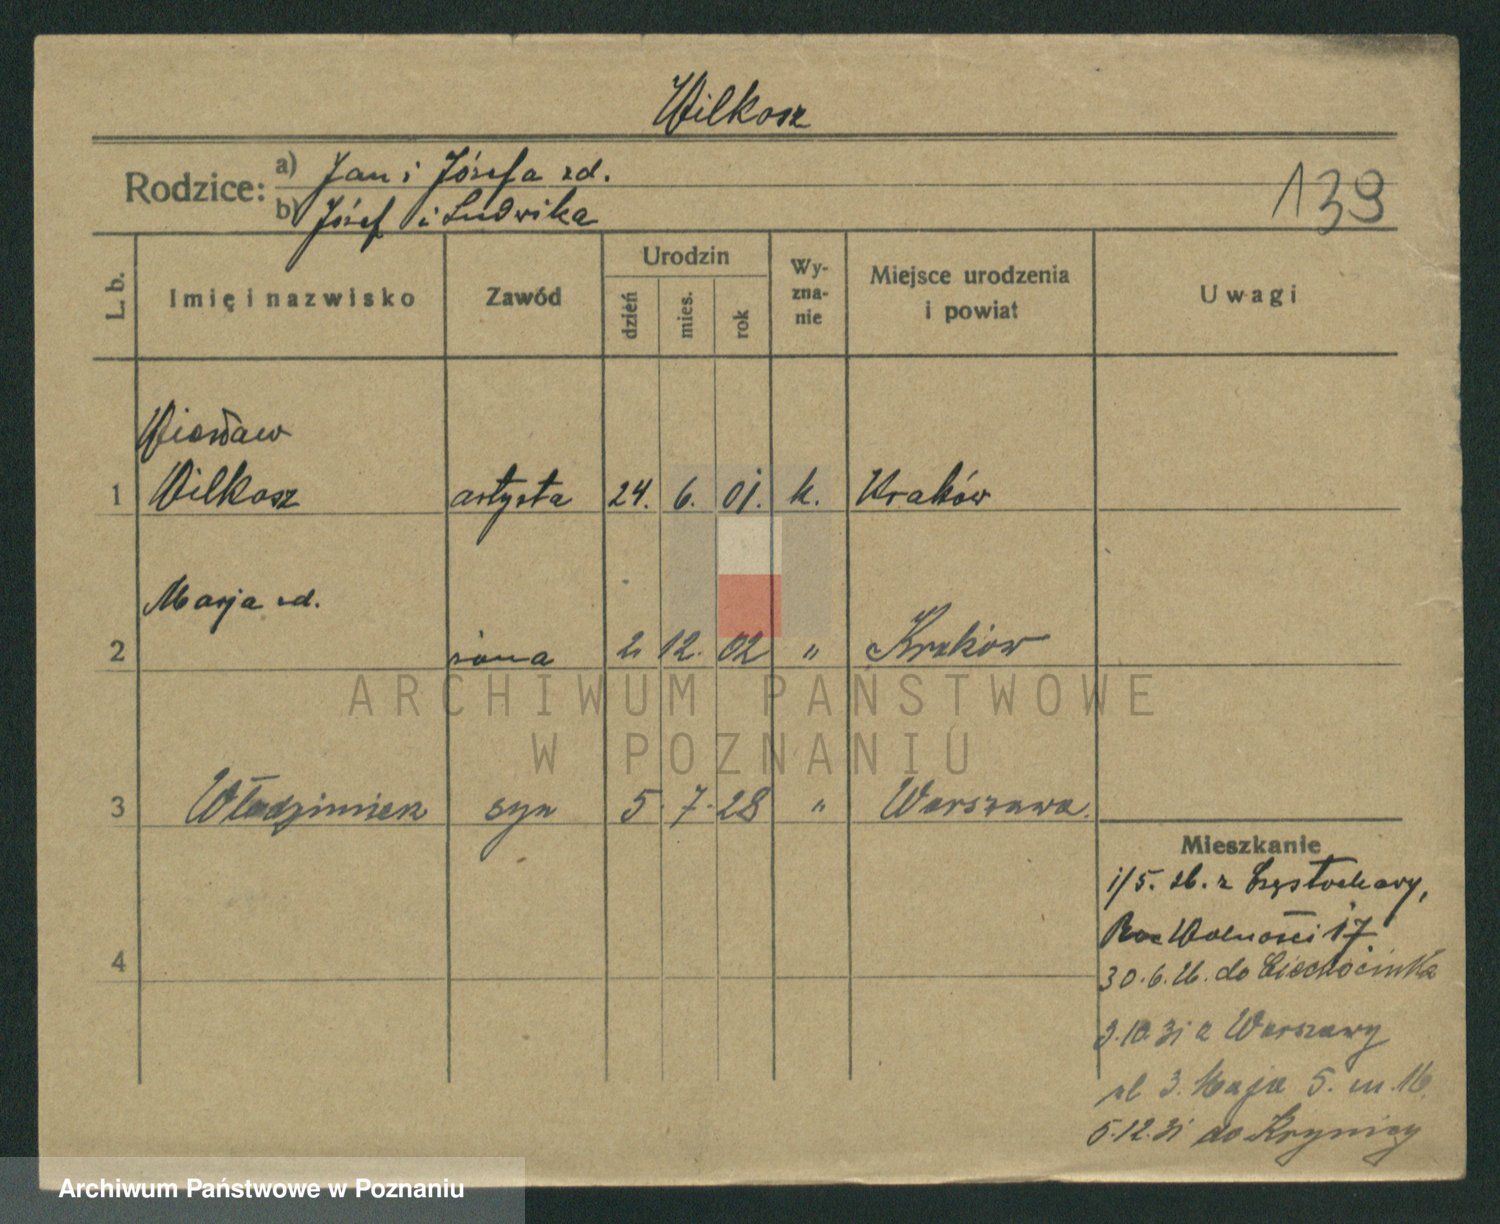 Wilkosz
Rodzice: a) Jan i Józefa zd.
b) Józef i Ludwika
139
L. b.
Imię i nazwisko
Zawód
Urodzin
dzień
mies.
rok
Wy-
zna-
nie
Miejsce urodzenia
i powiat
Uwagi
Wiesław
1 Wilkosz artysta 24. 6. 01. k. Kraków
Marja zd.
2 żona 2 12. 02 " Kraków
3 Włodzimierz syn 5. 7. 28 " Warszawa.
4
Mieszkanie
1/5. 26. z Częstochowy,
Wolności 17
30.6.26. do Ciechocinka
3.10.31 z Warszawy
ul 3. Maja 5. m. 16.
5.12.31 do Krynicy
ARCHIWUM PAŃSTWOWE
W POZNANIU
Archiwum Państwowe w Poznaniu